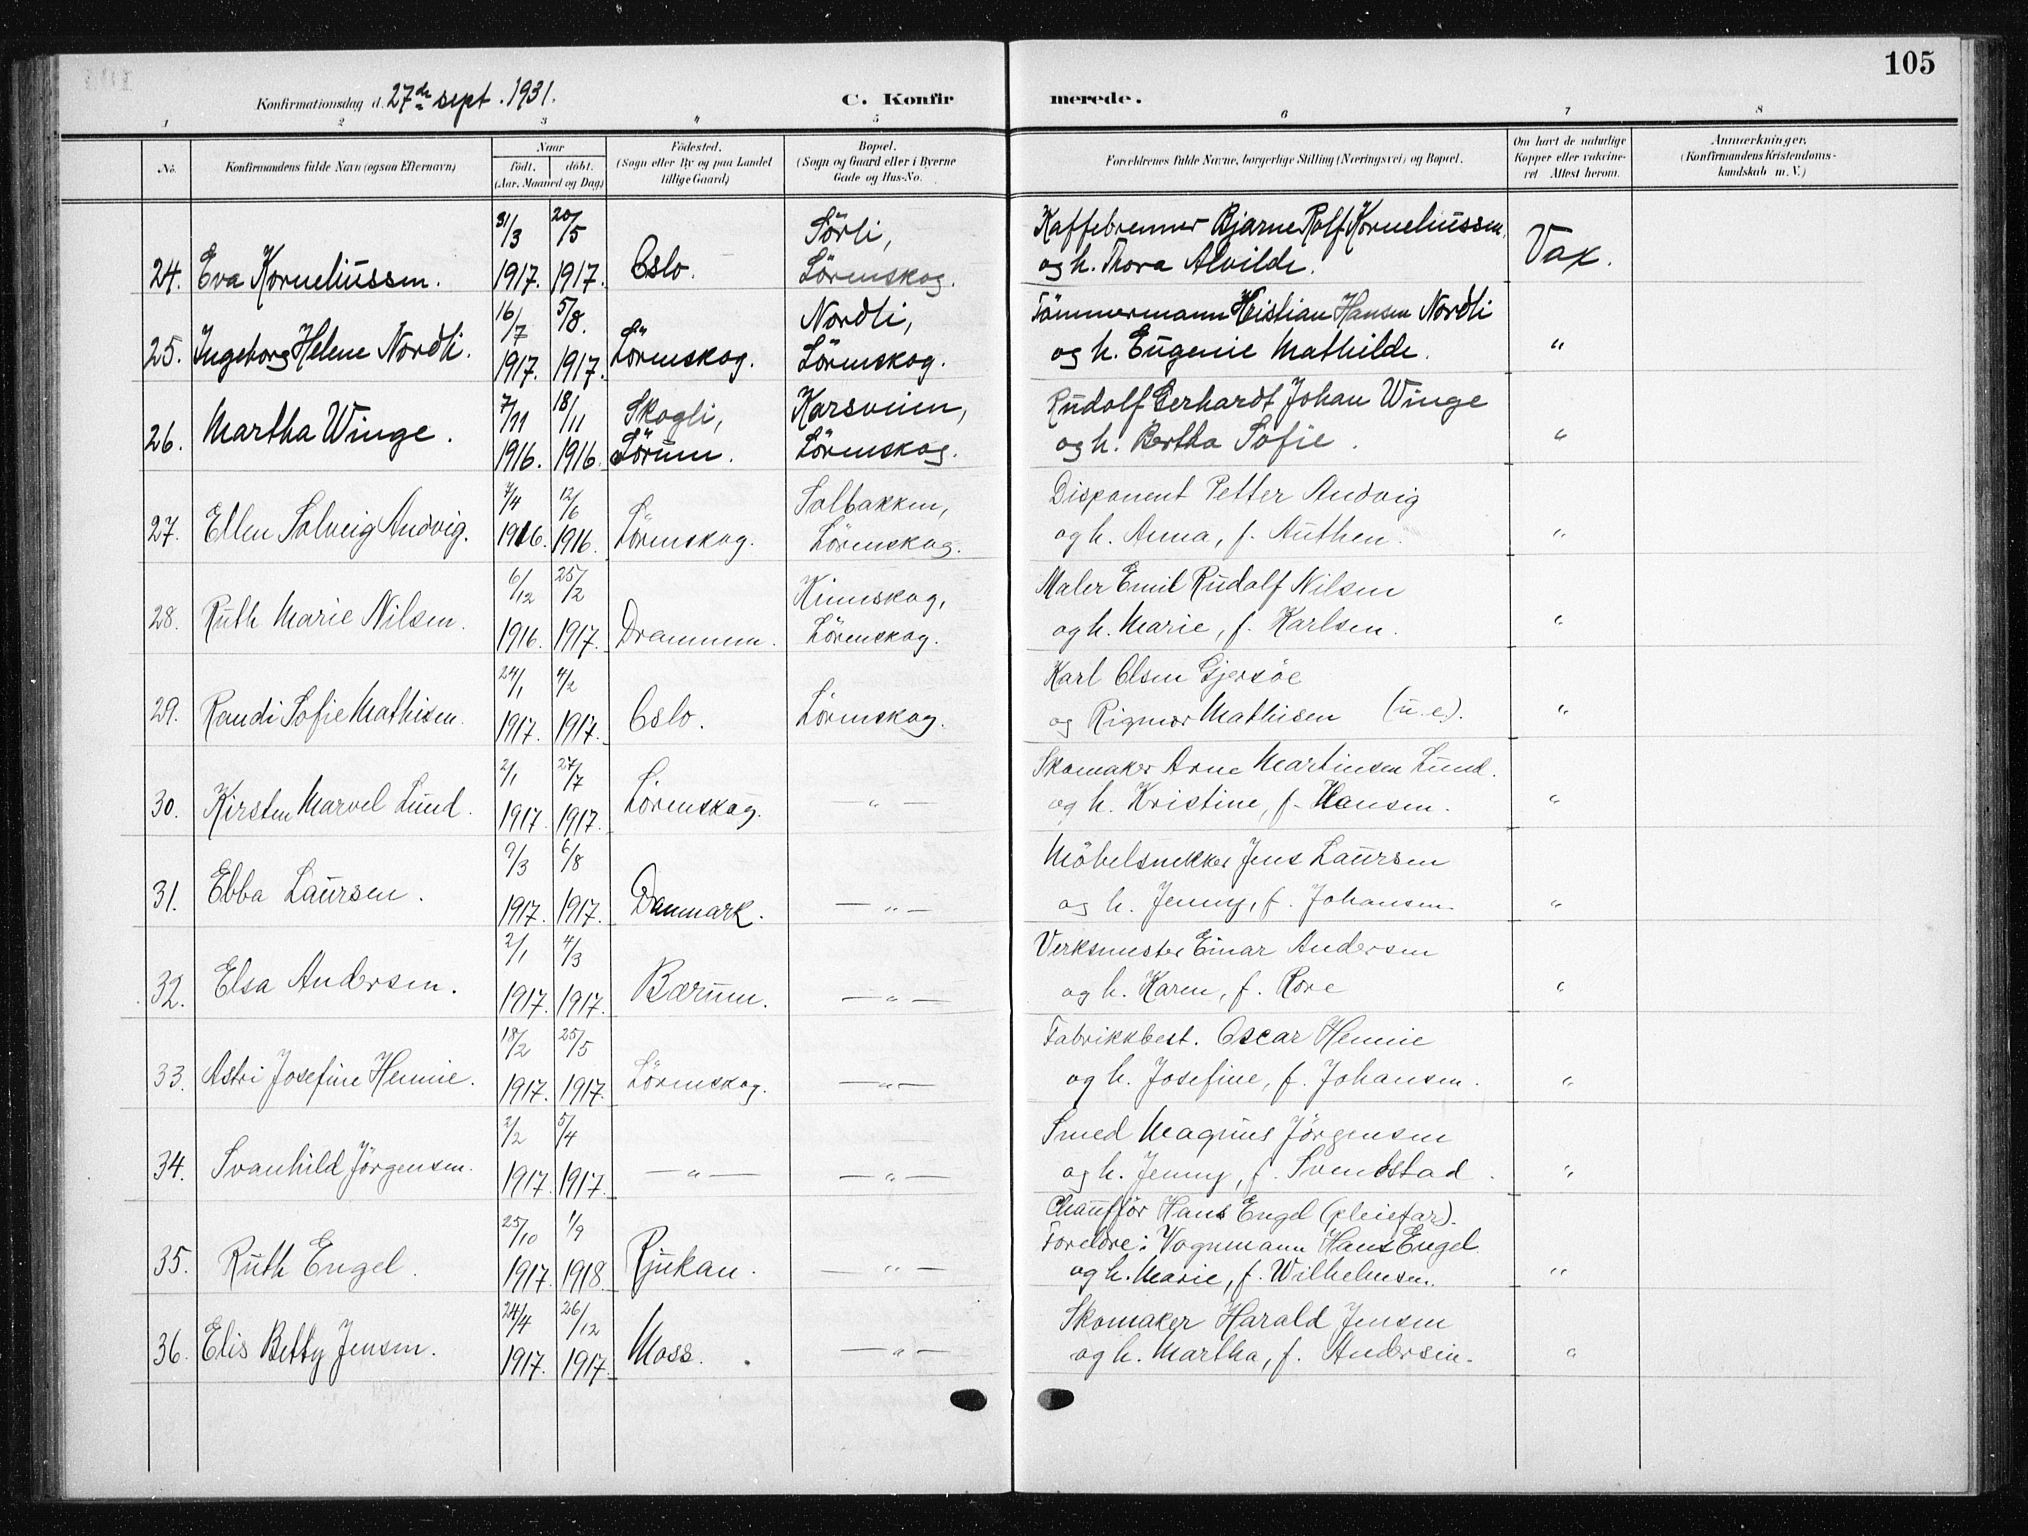 105
Konfirmationsdag d. 27de sept. 1931.
C. Konfirmerede.
1 2 3 4 5 6 7 8
No. Konfirmandens fulde Navn (ogsaa Efternavn) Naar født. døbt. (Aar, Maaned og Dag) Fødested. (Sogn eller By og paa Landet tillige Gaard) Bopæl. (Sogn og Gaard eller i Byerne Gade og Hus-No. Forældrenes fulde Navne, borgerlige Stilling (Næringsvei) og Bopæl. Om havt de naturlige Kopper eller vakcineret Attest herom. Anmærkninger. (Konfirmandens Kristendomskundskab m. V.)
31/3 20/5 Sörli, Kaffebrenner Bjarne Rolf Korneliussen,
24. Eva Korneliussen. 1917. 1917. Oslo. Lörenskog. og h. Thora Alvilde. Vax.
16/7 5/8. Nordli, Tömmermann Kristian Hansen Nordli
25. Ingeborg Helene Nordli. 1917. 1917. Lörenskog. Lörenskog. og h. Eugenie Mathilde. "
7/11 18/11 Skogli, Karsveien, Rudolf Gerhardt Johan Winge
26. Martha Winge. 1916. 1916. Sörum. Lörenskog. og h. Bertha Sofie. "
7/4 12/6 Solbakken, Disponent Petter Andvig
27. Ellen Solveig Andvig. 1916. 1916. Lörenskog. Lörenskog. og h. Anna, f. Authen. "
6/12 25/2 Kinnskog, Maler Emil Rudolf Nilsen
28. Ruth Marie Nilsen. 1916. 1917. Drammen. Lörenskog. og h. Marie, f. Karlsen. "
24/1 4/2 Karl Olsen Gjersöe
29. Randi Sofie Mathisen. 1917. 1917. Oslo. Lörenskog. og Rigmor Mathisen (u.e.). "
2/1 27/7 Skomaker Arne Martinsen Lund.
30. Kirsten Marvel Lund. 1917. 1917. Lörenskog. — " — og h. Kristine, f. Hansen. "
9/3 6/8 Möbelsnekker Jens Laursen
31. Ebba Laursen. 1917. 1917. Danmark. — " — og h. Jenny, f. Johansen. "
2/1 4/3 Verksmester Einar Andersen
32. Elsa Andersen. 1917. 1917. Bærum. — " — og h. Karen, f. Rore "
18/2 25/5 Fabrikkbest. Oscar Hennie
33. Astri Josefine Hennie. 1917. 1917. Lörenskog. — " — og h. Josefine, f. Johansen. "
2/2 5/4 Smed Magnus Jörgensen
34. Svanhild Jörgensen. 1917. 1917. — " — — " — og h. Jenny, f. Svendstad. "
25/10 1/9 Chaufför Hans Engel (pleiefar).
Foreldre: Vognmann Hans Engel
35. Ruth Engel. 1917. 1918. Rjukan. — " — og h. Marie, f. Wilhelmsen. "
24/4 26/12 Skomaker Harald Jensen
36. Elis Betty Jensen. 1917. 1917. Moss. — " — og h. Martha, f. Andersen. "